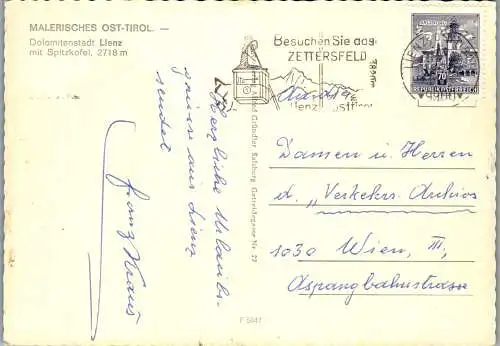 MALERISCHES OST-TIROL. —
Dolomitenstadt Lienz
mit Spitzkofel, 2718 m
Besuchen Sie das
ZETTERSFELD
Lienz Osttirol
70
REPUBLIK ÖSTERREICH
Herzliche Urlaubs-
grüsse aus Lienz
sendet
Franz Kraus
Damen u. Herren
d. „Verkehrs-Archivs
1030 Wien, III,
Aspangbahnstrasse
Gründler, Salzburg
F 5947